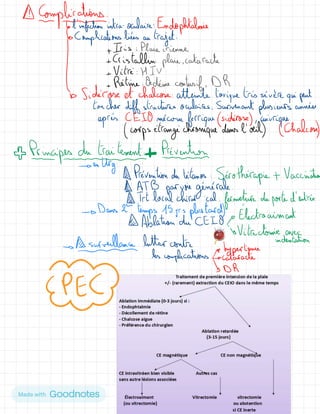 ⚠ Complications:
↳ L'infection intra-oculaire: Endophtalmie
↳ Complications liées au trajet:
+ Iris: Plaie irienne
+ Cristallin: plaie, cataracte
+ Vitré: HIV
+ Rétine: Œdème contusif, DR
↳ Siderose et chalcose: atteinte toxique très sévère qui peut
toucher diff structures oculaires. Survenant plusieurs années
après CEIO méconnu ferrique (sidérose), cuivrique
(corps étrange chronique dans l'œil) (Chalcose)
Principes du traitement + Prévention
→ Prévention du tétanos: Sérothérapie + Vaccination
ATB par voie générale
Trt local chirurgical fermeture de porte d'entrée
→ Dans 2e temps 15 jrs plus tard
Ablation du CEIO
Electroaimant
Vitrectomie avec
indentation
→ surveillance lutter contre
les complications
hypertonie
cataracte
DR
PEC
Traitement de première intension de la plaie
+/- (rarement) extraction du CEIO dans le même temps
Ablation immédiate (0-3 jours) si :
- Endophtalmie
- Décollement de rétine
- Chalcose aigue
- Préférence du chirurgien
Ablation retardée
(3-15 jours)
CE magnétique
CE non magnétique
CE intravitréen bien visible
sans autre lésions associées
Autres cas
Électroaimant
(ou vitrectomie)
Vitrectomie
vitrectomie
ou abstention
si CE inerte
Made with Goodnotes